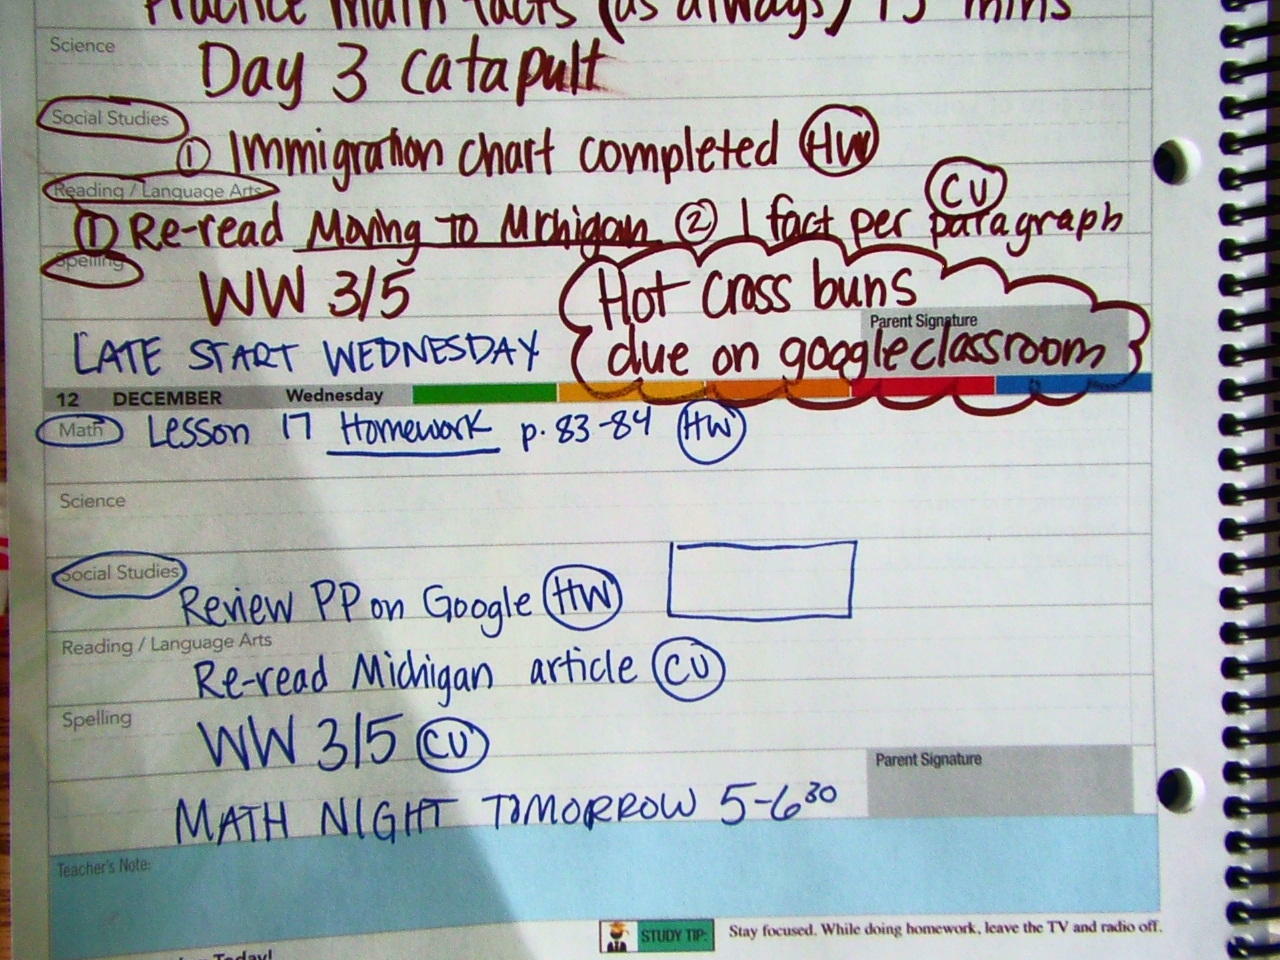 Practice math facts (as always) 15 mins
Science
Day 3 catapult
Social Studies
① Immigration chart completed HW
Reading / Language Arts
CU
① Re-read Moving to Michigan ② 1 fact per paragraph
Spelling
WW 3/5
Hot cross buns
Parent Signature
due on google classroom
LATE START WEDNESDAY
12 DECEMBER Wednesday
Math Lesson 17 Homework p. 83-84 HW
Science
Social Studies
Review PP on Google HW
Reading / Language Arts
Re-read Michigan article CU
Spelling
WW 3/5 CU
Parent Signature
MATH NIGHT TOMORROW 5-6³⁰
Teacher's Note:
STUDY TIP: Stay focused. While doing homework, leave the TV and radio off.
Today!